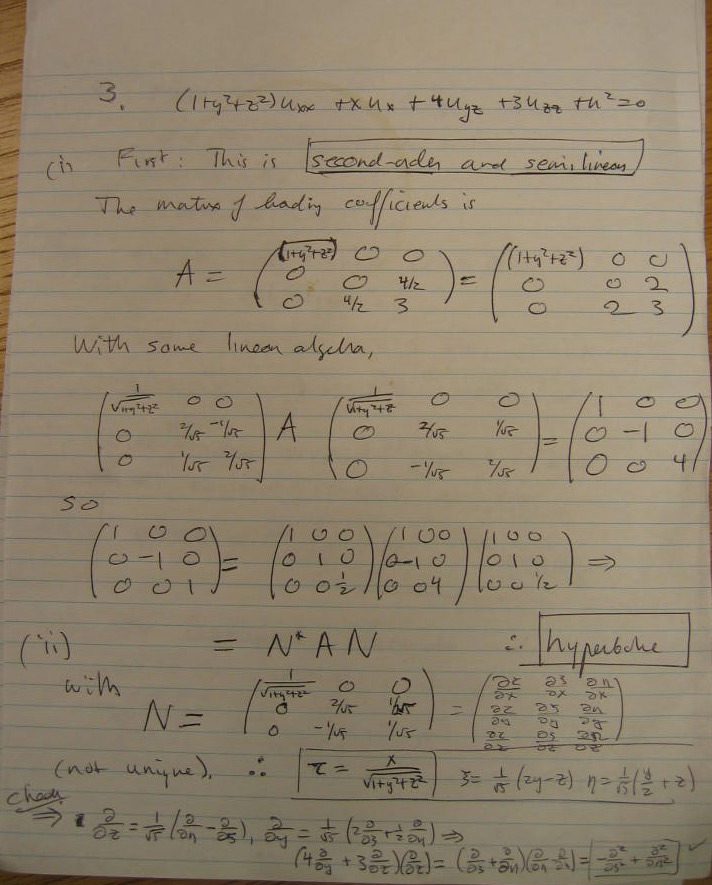 3. (1+y²+z²)u_xx + x u_x + 4u_yz + 3u_zz + u² = 0
(i) First: This is second-order and semilinear
The matrix of leading coefficients is
A = ( (1+y²+z²) 0 0 ; 0 0 4/2 ; 0 4/2 3 ) = ( (1+y²+z²) 0 0 ; 0 0 2 ; 0 2 3 )
With some linear algebra,
( 1/√(1+y²+z²) 0 0 ; 0 2/√5 -1/√5 ; 0 1/√5 2/√5 ) A ( 1/√(1+y²+z²) 0 0 ; 0 2/√5 1/√5 ; 0 -1/√5 2/√5 ) = ( 1 0 0 ; 0 -1 0 ; 0 0 4 )
so
( 1 0 0 ; 0 -1 0 ; 0 0 1 ) = ( 1 0 0 ; 0 1 0 ; 0 0 1/2 ) ( 1 0 0 ; 0 -1 0 ; 0 0 4 ) ( 1 0 0 ; 0 1 0 ; 0 0 1/2 ) ⇒
(ii) = N* A N ∴ hyperbolic
with
N = ( 1/√(1+y²+z²) 0 0 ; 0 2/√5 ; 0 -1/√5 1/√5 ) = ( ∂τ/∂x ∂ξ/∂x ∂η/∂x ; ∂τ/∂y ∂ξ/∂y ∂η/∂y ; ∂τ/∂z ∂ξ/∂z ∂η/∂z )
(not unique). ∴ τ = x/√(1+y²+z²) ξ = 1/√5 (2y-z) η = 1/√5 (y/2 + z)
check
⇒ ∂/∂z = 1/√5 (∂/∂η - ∂/∂ξ), ∂/∂y = 1/√5 (2 ∂/∂ξ + 1/2 ∂/∂η) ⇒
(4 ∂/∂y + 3 ∂/∂z)(∂/∂z) = (∂/∂ξ + ∂/∂η)(∂/∂η - ∂/∂ξ) = -∂²/∂ξ² + ∂²/∂η² ✓